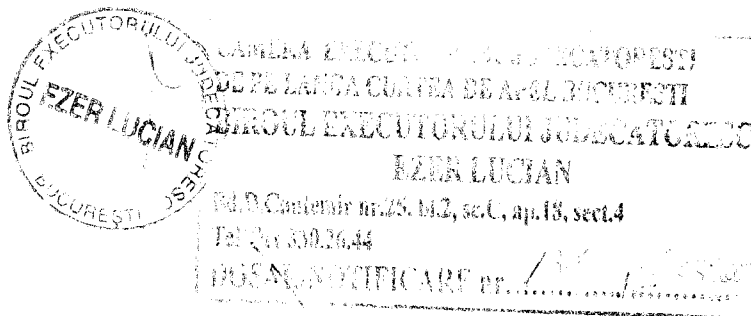 BIROUL EXECUTORULUI JUDECATORESC
EZER LUCIAN
BUCUREŞTI
CAMERA
DE PE LANGA CURTEA DE APEL BUCURESTI
BIROUL EXECUTORULUI JUDECATORESC
EZER LUCIAN
Bd.D.Cantemir nr.25, bl.2, sc.C, ap.18, sect.4
330.26.44
NOTIFICARE nr.